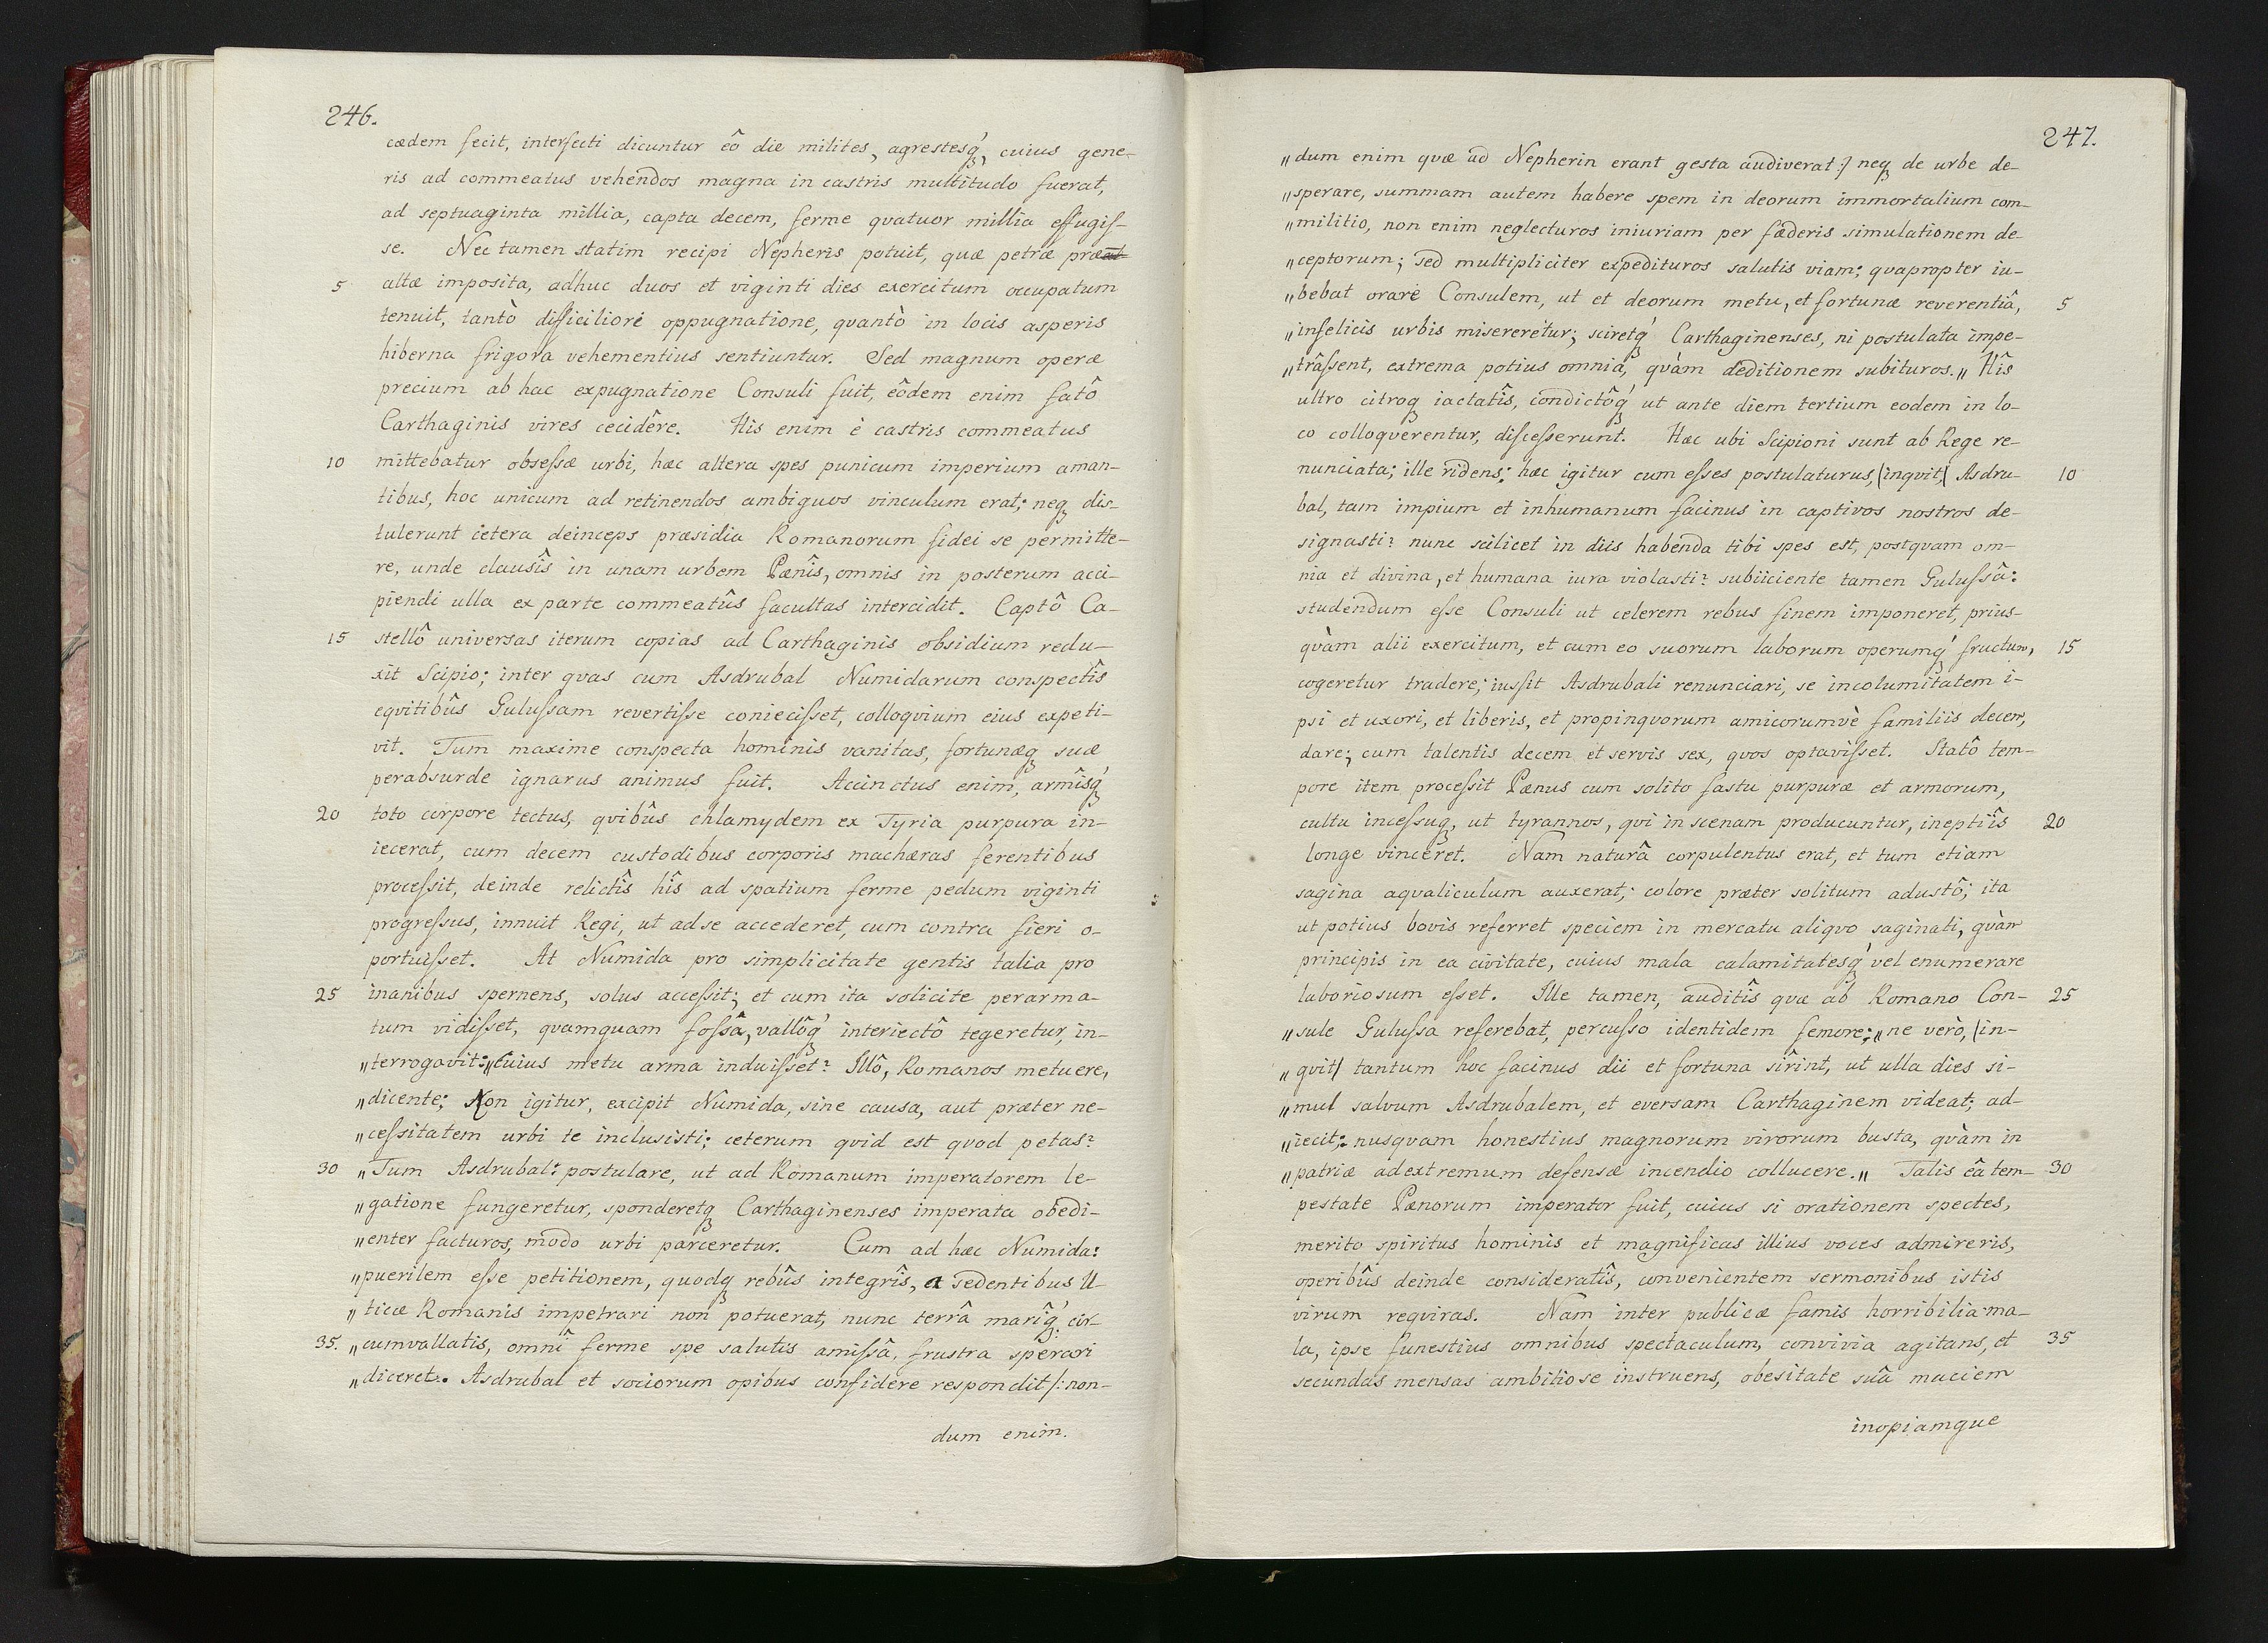 246.
cædem fecit, interfecti dicuntur eô die milites, agrestesq́ꝫ, cuius gene-
ris ad commeatus vehendos magna in castris multitudo fuerat,
ad septuaginta millia, capta decem, ferme qvatuor millia effugiſ-
se. Nec tamen statim recipi Nepheris potuit, quæ petræ præ
5 altæ imposita, adhuc duos et viginti dies exercitum occupatum
tenuit, tantò difficiliore oppugnatione, qvantò in locis asperis
hiberna frigora vehementius sentiuntur. Sed magnum operæ
precium ab hac expugnatione Consuli fuit, eôdem enim fatô
Carthaginis vires cecidêre. His enim è castris commeatus
10 mittebatur obseſsæ urbi, hæc altera spes punicum imperium aman-
tibus, hoc unicum ad retinendos ambiguos vinculum erat; neqꝫ dis-
tulerunt cetera deinceps præsidia Romanorum fidei se permitte-
re, unde clausîs in unam urbem Pœnîs, omnis in posterum acci-
piendi ulla ex parte commeatûs facultas intercidit. Captô Ca-
15 stellô universas iterum copias ad Carthaginis obsidium redu-
xit Scipio; inter qvas cum Asdrubal Numidarum conspectîs
eqvitibûs Guluſsam revertiſse conieciſset, colloqvium eius expeti-
vit. Tum maxime conspecta hominis vanitas, fortunæqꝫ suæ
perabsurde ignarus animus fuit. Accinctus enim, armîsq́ꝫ
20 toto corpore tectus, qvibûs chlamydem ex Tyria purpura in-
iecerat, cum decem custodibus corporis machæras ferentibus
proceſsit, deinde relictîs hîs ad spatium ferme pedum viginti
progreſsus, innuit Regi, ut ad se accederet, cum contra fieri o-
portuiſset. At Numida pro simplicitate gentis talia pro
25 inanibus spernens, solus acceſsit; et cum ita solicite perarma-
tum vidiſset, qvamquam foſsâ, vallôq́ꝫ interiectô tegeretur, in-
„terrogavit: „cuius metu arma induiſset? Illô, Romanos metuere,
„dicente; Non igitur, excipit Numida, sine causa, aut præter ne-
„ceſsitatem urbi te inclusisti; ceterum qvid est qvod petas?
30 „Tum Asdrubal: postulare, ut ad Romanum imperatorem le-
„gatione fungeretur, sponderetqꝫ Carthaginenses imperata obedi-
„enter facturos, modo urbi parceretur. Cum ad hæc Numida:
„puerilem eſse petitionem, quodqꝫ rebûs integrîs, a sedentibus U-
„ticæ Romanis impetrari non potuerat, nunc terrâ marîq́ꝫ cir-
35. „cumvallatis, omnî ferme spe salutis amiſsâ, frustra sperari
„diceret. Asdrubal et sociorum opibus confidere respondit /: non-
dum enim.
247.
„dum enim quæ ad Nepherin erant gesta audiverat :/ neqꝫ de urbe de-
„sperare, summam autem habere spem in deorum immortalium com-
„militio, non enim neglecturos iniuriam per fœderis simulationem de-
„ceptorum; sed multipliciter expedituros salutis viam; qvapropter iu-
„bebat orare Consulem, ut et deorum metu, et fortunæ reverentiâ, 5
„infelicis urbis misereretur; sciretq́ꝫ Carthaginenses, ni postulata impe-
„trâſsent, extrema potius omnia, qvàm deditionem subituros. „ Hîs
ultro citroqꝫ iactatîs, condictôq́ꝫ ut ante diem tertium eodem in lo-
co colloqverentur, diſceſserunt. Hæc ubi Scipioni sunt ab Rege re-
nunciata; ille ridens: hæc igitur cum eſses postulaturus, /inqvit,/ Asdru- 10
bal, tam impium et inhumanum facinus in captivos nostros de-
signasti? nunc scilicet in diis habenda tibi spes est, postqvam om-
nia et divina, et humana iura violasti? subiiciente tamen Guluſsâ:
studendum eſse Consuli ut celerem rebus finem imponeret, prius-
qvàm alii exercitum, et cum eo suorum laborum operumq́ꝫ fructum, 15
cogeretur tradere; iuſsit Asdrubali renunciari, se incolumitatem i-
psi et uxori, et liberis, et propinqvorum amicorumvè familiis decem,
dare; cum talentis decem et servis sex, qvos optaviſset. Statô tem-
pore item proceſsit Pœnus cum solito fastu purpuræ et armorum,
cultu inceſsuqꝫ, ut tyrannos, qvi in scenam producuntur, ineptiîs 20
longe vinceret. Nam naturâ corpulentus erat, et tum etiam
sagina aqvaliculum auxerat; colore præter solitum adustô; ita
ut potius bovis referret speciem in mercatu aliqvo saginati, qvàm
principis in ea civitate, cuius mala calamitatesq́ꝫ vel enumerare
laboriosum eſset. Ille tamen, auditîs quæ ab Romano Con- 25
„sule Guluſsa referebat, percuſso identidem femore; „ne verò, /in-
„qvit/ tantum hoc facinus dii et fortuna sîrint, ut ulla dies si-
„mul salvum Asdrubalem, et eversam Carthaginem videat; ad-
„iecit; nusqvam honestius magnorum virorum busta, qvàm in
„patriæ ad extremum defensæ incendio collucere. „ Talis eâ tem- 30
pestate Pœnorum imperator fuit, cuius si orationem spectes,
merito spiritus hominis et magnificas illius voces admireris,
operibûs deinde consideratîs, convenientem sermonibus istis
virum reqviras. Nam inter publicæ famis horribilia ma-
la, ipse funestius omnibus spectaculum, convivia agitans, et 35
secundas mensas ambitiose instruens, obesitate suâ maciem
inopiamque